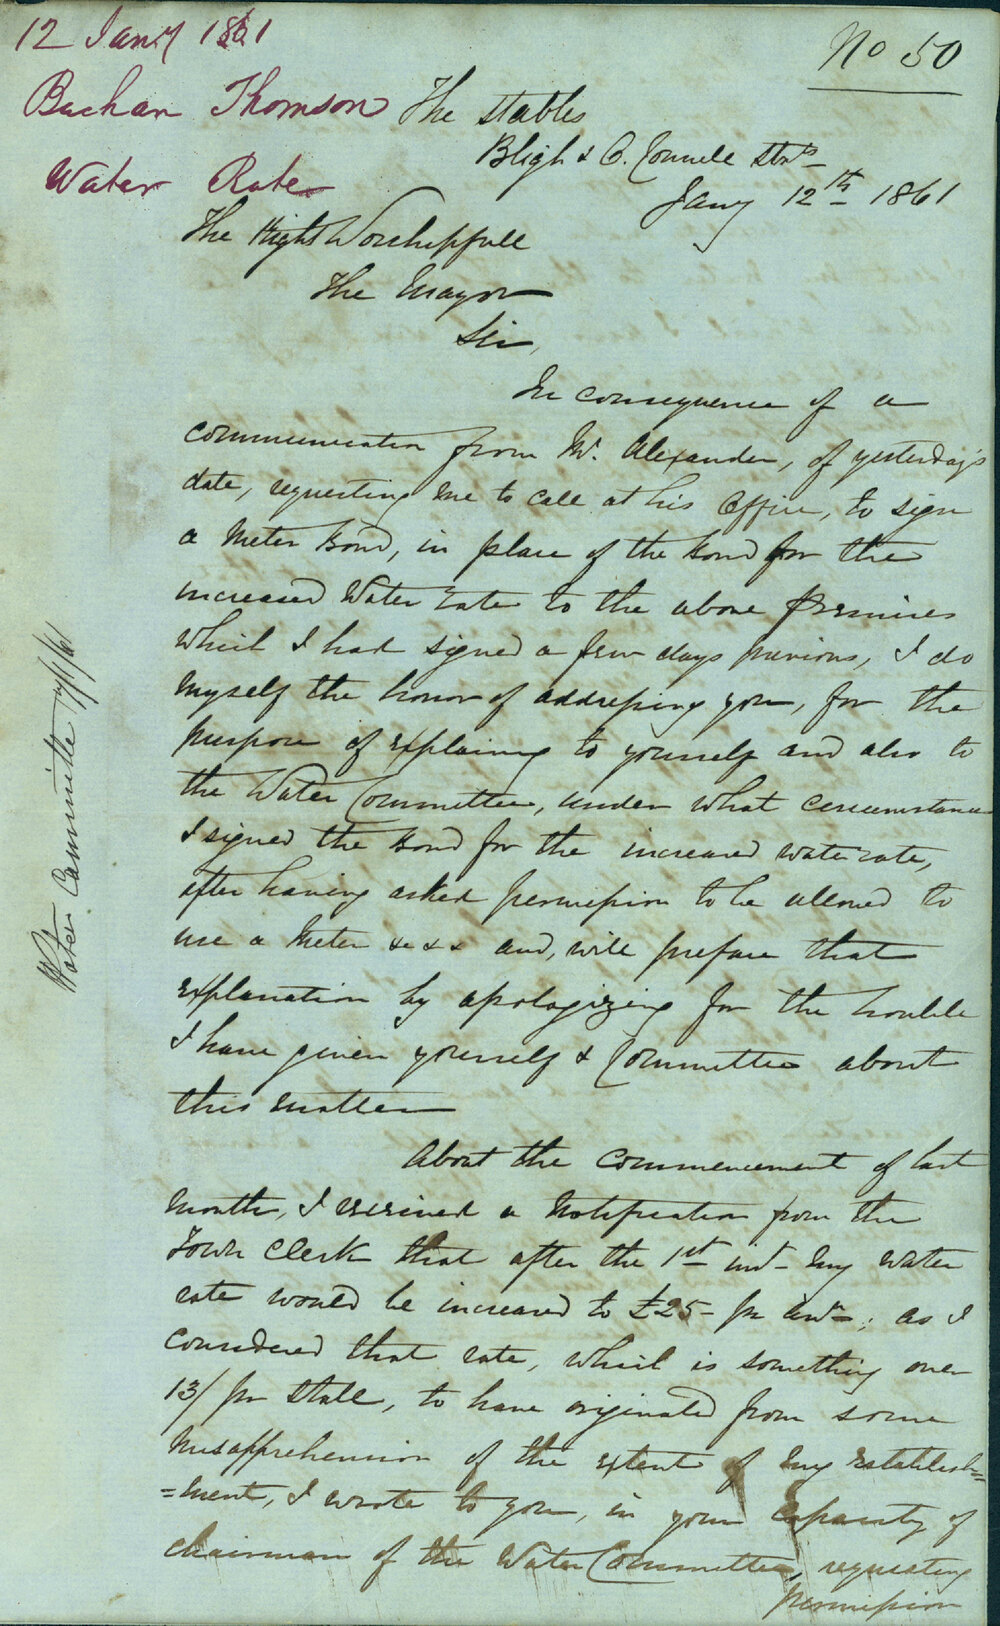 12 Jany 1861
No 50
Buchan Thomson
Water Rate
The Stables
Bligh & O.Connell Strts
Jany 12th 1861
The Right Worshipfull
The Mayor
Sir,
In consequence of a
communication from Mr. Alexander, of yesterday's
date, requesting me to call at his Office, to sign
a Meter Bond, in place of the Bond for the
increased Water rate to the above premises
which I had signed a few days previous, I do
myself the honor of addressing you, for the
purpose of explaining to yourself and also to
the Water Committee, under what circumstances
I signed the Bond for the increased water rate,
after having asked permission to be allowed to
use a Meter &c &c and, will preface that
explanation by apologizing for the trouble
I have given yourself & Committee about
this matter
About the commencement of last
month, I received a Notification from the
Town Clerk that after the 1st inst my water
rate would be increased to £25- pr ann; as I
considered that rate, which is something over
13/ pr Stall, to have originated from some
misapprehension of the extent of my establish=
=ment, I wrote to you, in your capacity of
chairman of the Water Committee, requesting
permission
Water Committee 17/1/61